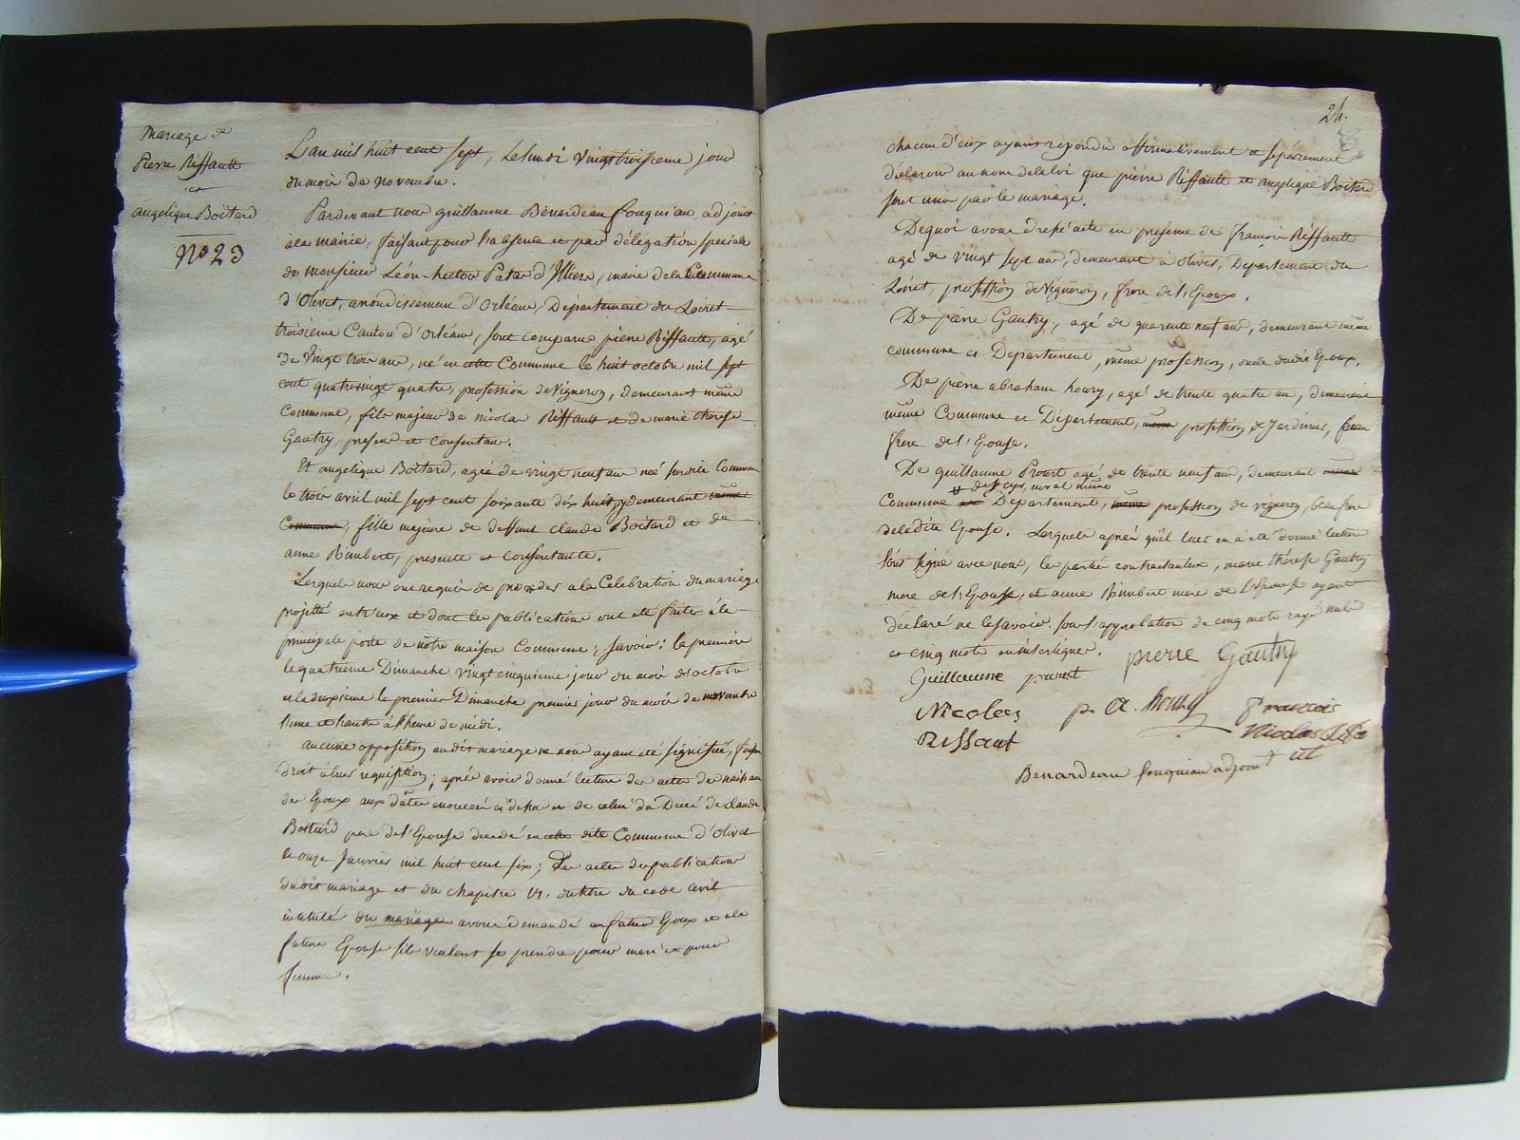 Mariage de
Pierre Riffault
et
angelique Boitard
N° 23
L'an mil huit cent sept, le lundi vingt troisieme jour
du mois de novembre.
Pardevant nous guillaume Bénardeau fouqueau, adjoint
a la mairie, faisant pour l'absence et par délégation speciale
de monsieur Léon-hector Patas d'Illiers, maire de la Commune
d'Olivet, arrondissement d'Orléans, Département du Loiret
troisieme Canton d'Orléans, sont comparus pierre Riffault, agé
de vingt trois ans, né en cette Commune le huit octobre mil sept
cent quatrevingt quatre, profession de Vigneron, demeurant même
Commune, fils majeur de nicolas Riffault et de marie therese
Gautry, present et consentans.
Et angelique Boitard, agée de vingt neuf ans née susdite Commune
le trois avril mil sept cent soixante dix huit, y demeurant même
Commune, fille majeure de deffunt claude Boitard et de
anne Rimbert, presente et consentante.
Lesquels nous ont requis de proceder a la Célébration du mariage
projetté entr'eux et dont les publications ont été faites à la
principale porte de nôtre maison Commune; savoir: la premiere
le quatrieme Dimanche vingt cinquieme jour du mois d'octobre
et la deuxieme le premier Dimanche premier jour du mois de novembre
à l'heure de midi.
aucune opposition audit mariage ne nous ayant été signifiée, faisant
droit à leur requisition; après avoir donné lecture des actes de naissance
des Epoux aux dattes enoncées ci dessus et de celui du Décé de claude
Boitard pere de l'Epouse décédé en cette dite Commune d'Olivet
le onze Janvier mil huit cent six; Des actes de publication
dudit mariage et du chapitre VI. du titre du code civil
intitulé du mariage avons demandé au futur Epoux et a la
future Epouse s'ils veulent se prendre pour mari et pour
femme.
24.
chacun d'eux ayant repondu affirmativement et separement
déclarons au nom de la loi que pierre Riffault et angelique Boitard
sont unis par le mariage.
De quoi avons dressé acte en presence de françois Riffault
agé de vingt sept ans, demeurant à olivet, Département du
Loiret, profession de Vigneron, frere de l'Epoux.
De pierre Gautry, agé de quarente neuf ans, demeurant même
commune et Département, même profession, oncle dudit Epoux.
De pierre abraham houry, agé de trente quatre ans, demeurant
même Commune et Département, même profession de Jardinier, beau
frere de l'Epouse.
De guillaume Proust agé de trente neuf ans, demeurant même
de st cyr, en val même
Commune et Département, même profession de vigneron, beau frere
de ladite Epouse. Lesquels après qu'il leur en a été donné lecture
l'ont signé avec nous, les parties contractantes, marie thérese Gautry
mere de l'Epoux, et anne Rimbert mere de l'Epouse ayant
déclaré ne le savoir. sous l'approbation de cinq mots rayés nuls
et cinq mots en interligne.
pierre Gautry
Guillaume proust
Nicolas
Riffaut
p. A. houry
francois
Nicolas
Benardeau fouqueau adjoint